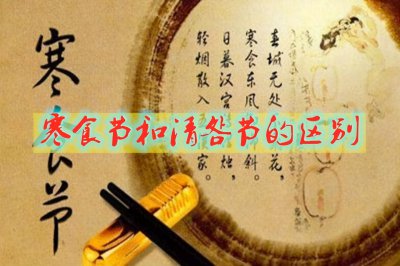 寒食节
寒食节和清明节的区别
春城无处花，
寒食东风斜。
日暮汉宫烛，
轻烟散入家。